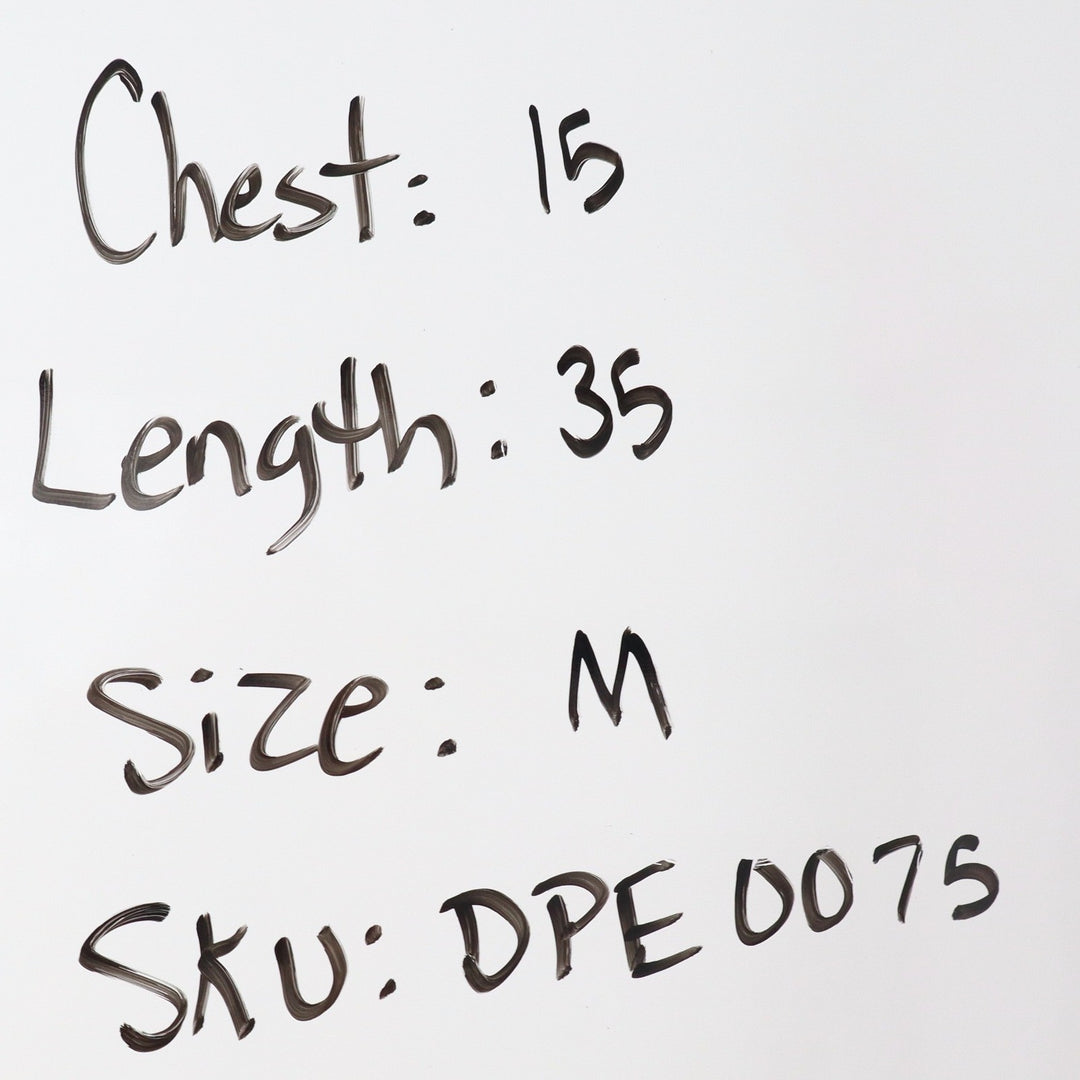 Chest: 15
Length: 35
Size: M
Sku: DPE 0075